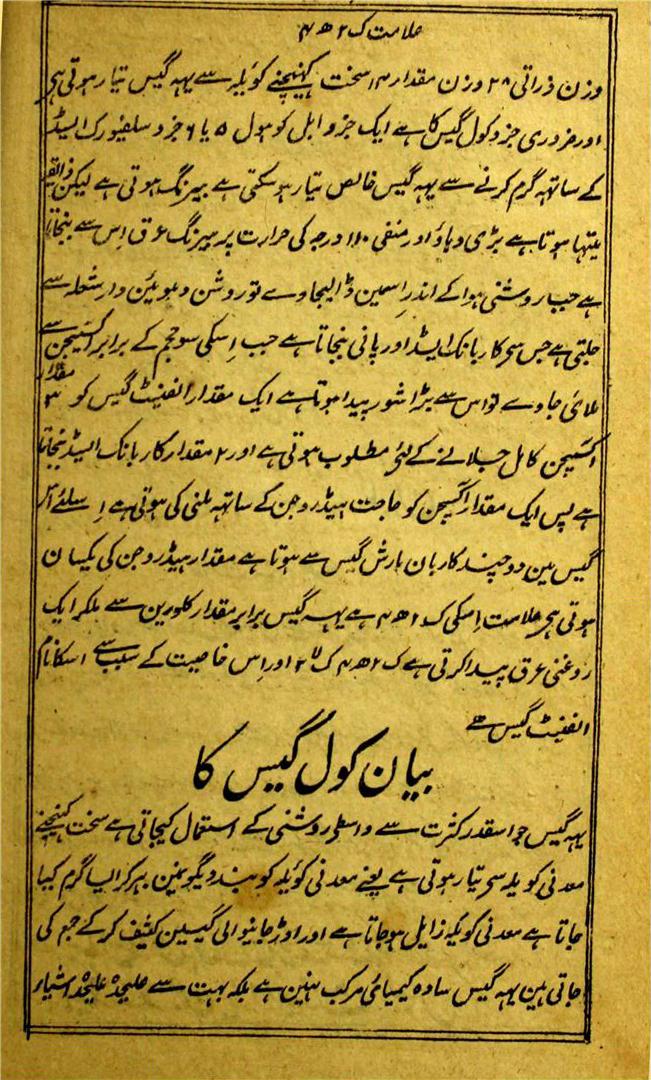 علامت ک۲ ھ۴
وزن ذراتی ۲۸ وزن مقدار ۱۴ سخت کہنیچنے کوئیلہ سے یہہ گیس تیار ہوتی ہی
اور ضروری جزو کول گیس کا ہے ایک جزو ابل کوہول ۵ یا ۶ جزو سلفیورک ایسڈ
کے ساتہہ گرم کرنے سے یہہ گیس خالص تیار ہو سکتی ہے بیرنگ ہوتی ہے لیکن ذائقہ
میٹہا ہوتا ہے بڑی دباؤ اور منفی ۱۱۰ درجہ کی حرارت پر بیرنگ عرق اِس سے بنجاتا
ہے جب روشنی ہوا کے اندر اِسمین ڈالیجاوے تو روشن دہوئین دار شعلہ سے
جلتی ہے جس سی کاربانک ایسڈ اور پانی بنجاتا ہے جب اِسکی سو حجم کے برابر اکسیجن سے
ملائی جاوے تو اس سے بڑا شور پیدا ہوتا ہے ایک مقدار الفینٹ گیس کو ۳ مقدار
اکسیجن کامل جلانے کے لئے مطلوب ہوتی ہے اور ۲ مقدار کاربانک ایسڈ بنجاتا
ہے پس ایک مقدار اکسیجن کو حاجت ہیڈروجن کے ساتہہ ملنی کی ہوتی ہے اِسلئے اس
گیس مین دو چند کاربان مارش گیس سے ہوتا ہے مقدار ہیڈروجن کی یکسان
ہوتی ہی علامت اِسکی ک۲ ھ۴ ہے یہہ گیس برابر مقدار کلورین سے ملکر ایک
روغنی عرق پیدا کرتی ہے ک۲ ھ۴ ک ل۲ اور اِس خاصیت کے سبب سے اسکا نام
الفینٹ گیس ہے
بیان کول گیس کا
یہہ گیس جو اسقدر کثرت سے واسطے روشنی کے استعمال کیجاتی ہے سخت کہنیچنے
معدنی کویلہ سی تیار ہوتی ہے یعنے معدنی کوئیلہ کو بند دیگونمین بہر کر ایسا گرم کیا
جاتا ہے معدنی کویلہ زایل ہو جاتا ہے اور اوڑ جانیوالی گیسین کثیف کر کے جمع کی
جاتی ہین یہہ گیس سادہ کیمیائی مرکب نہین ہے بلکہ بہت سے علیحدہ علیحدہ اشیاء